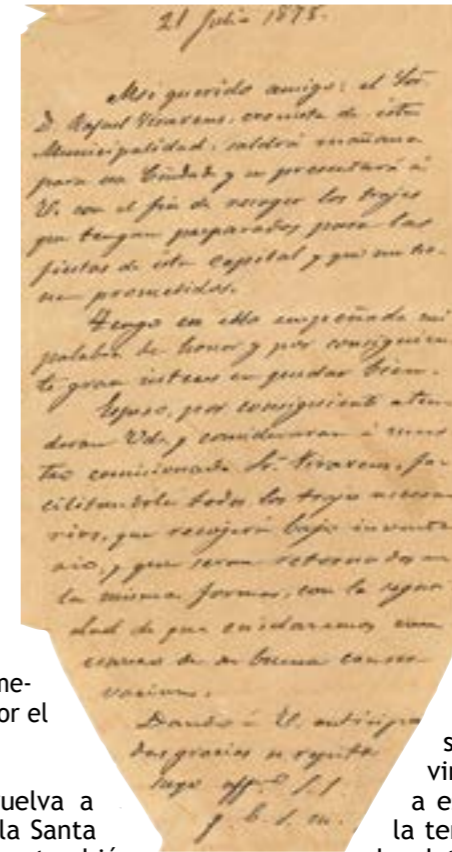 21 Julio 1875.
Mi querido amigo: el Sor.
D. Rafael Vivarens, de esta
Municipalidad, saldrá mañana
para esa Ciudad y se presentará á
V. con el fin de recoger los trajes
que tengan preparados para las
fiestas de esta Capital y que me tie-
nen prometidos.
Tengo en ello empeñada mi
palabra de honor y por consiguien-
te gran interes en quedar bien.
Espero, por consiguiente aten-
deran Vds. y consideraran á nues-
tro comicionado Sr. Vivarens, fa-
cilitandole todos los trajes necesa-
rios, que recojerá bajo inventa-
rio, y que seran retornados en
la misma forma, con la segur
dad de que cuidaremos
de su buena conser-
vacion.
Dando á V. anticipa
das gracias se repite
suyo aff.º S. S.
q. b. s. m.
me-
or el
uelva a
la Santa
s
vir
a e
la ter